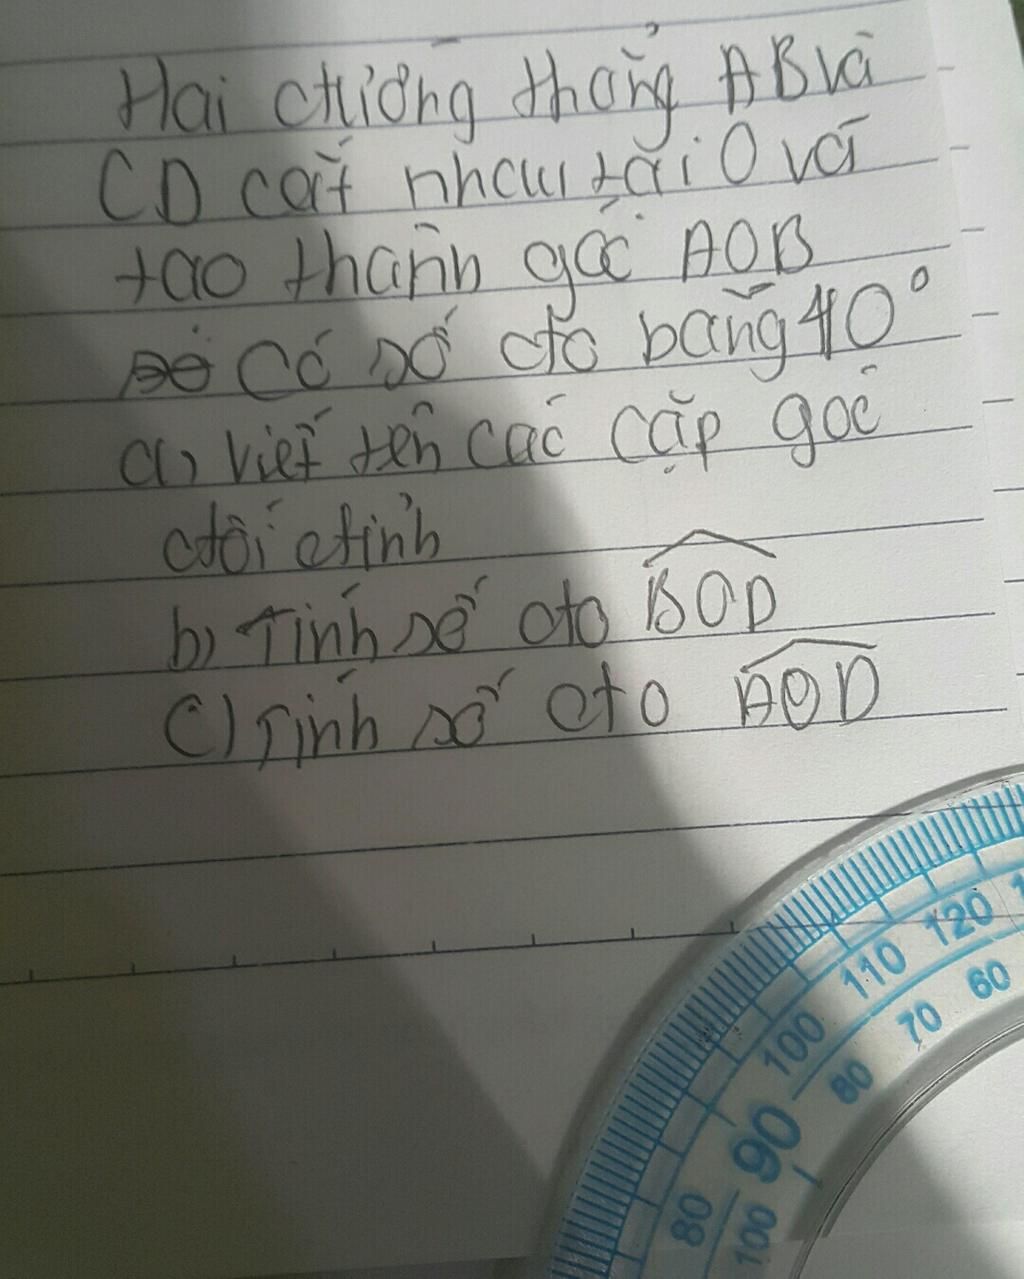 Hai đường thẳng AB và
CD cắt nhau tại O và
tạo thành góc AOB
Có số đo bằng 40°
a) viết tên các cặp góc
đối đỉnh
b) Tính số đo BOD
c) Tính số đo AOD
120
110
100
90
80
60
70
80
100